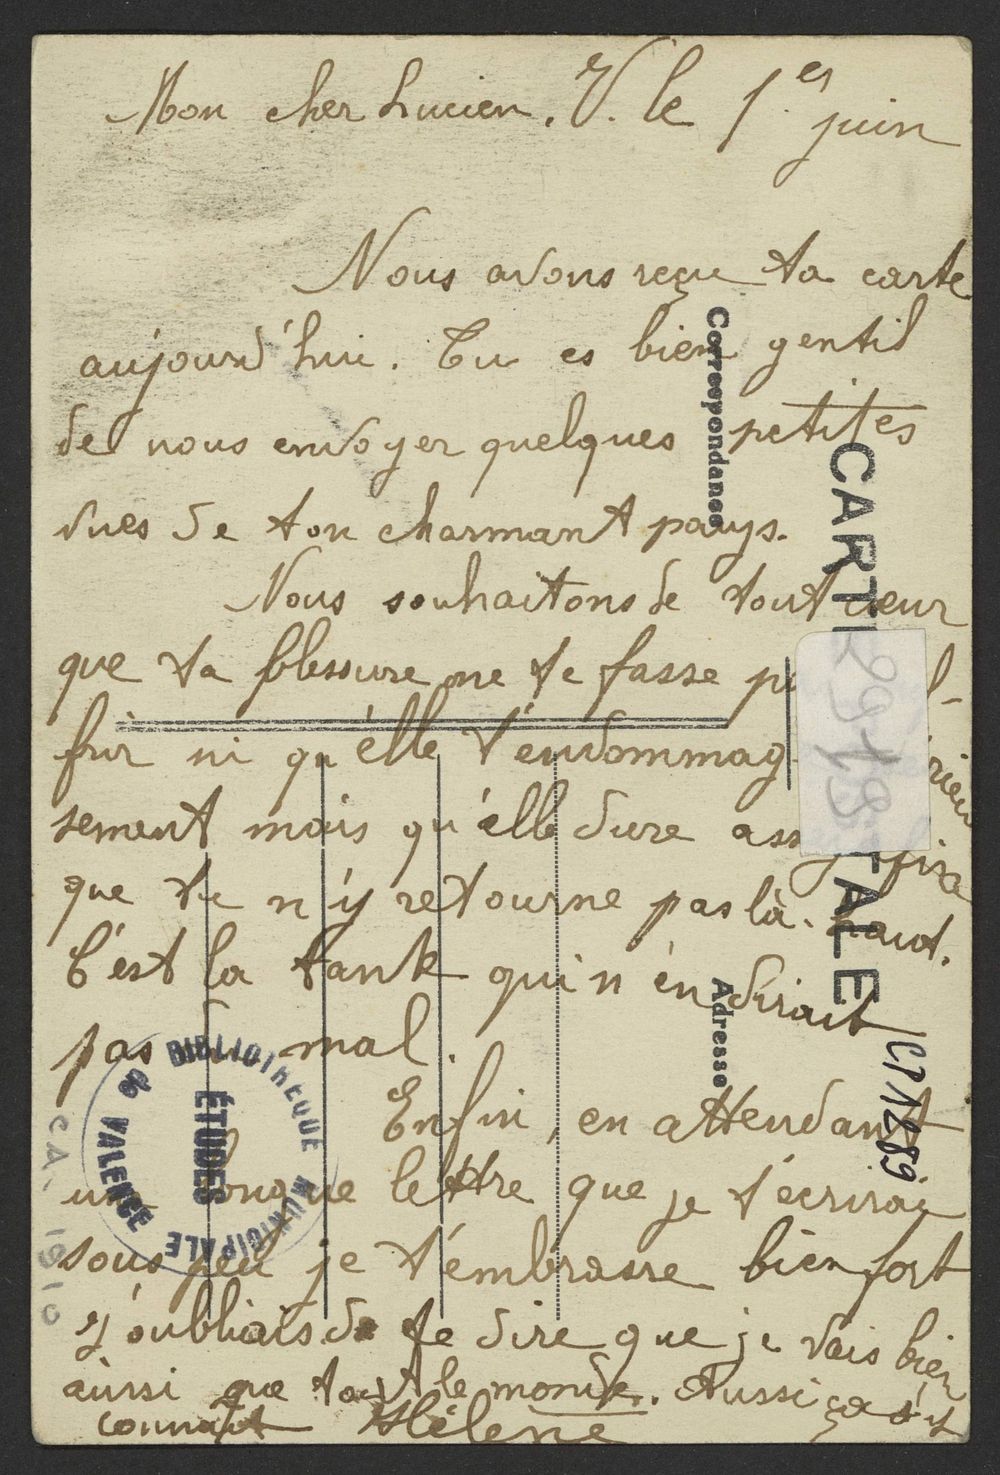 Mon cher Lucien. V. le 1.er juin
Nous avons reçu ta carte
aujourd'hui. Tu es bien gentil
de nous envoyer quelques petites
vues de ton charmant pays.
Nous souhaitons de tout cœur
que ta blessure ne te fasse
frir ni qu'elle t'endommag
sement mais qu'elle dure
que tu n'y retourne pas là-haut.
C'est la tante qui n'en dirait
pas mal.
Enfin, en attendant
longue lettre que je t'écrirai
sous peu je t'embrasse bien fort
J'oubliais de te dire que je vais bien
aussi que tout le monde. Aussi
connait Hélène
Correspondance
CARTE POSTALE
Adresse
29189
CP1289
BIBLIOTHEQUE MUNICIPALE
de VALENCE
ÉTUDES
CA. 1910